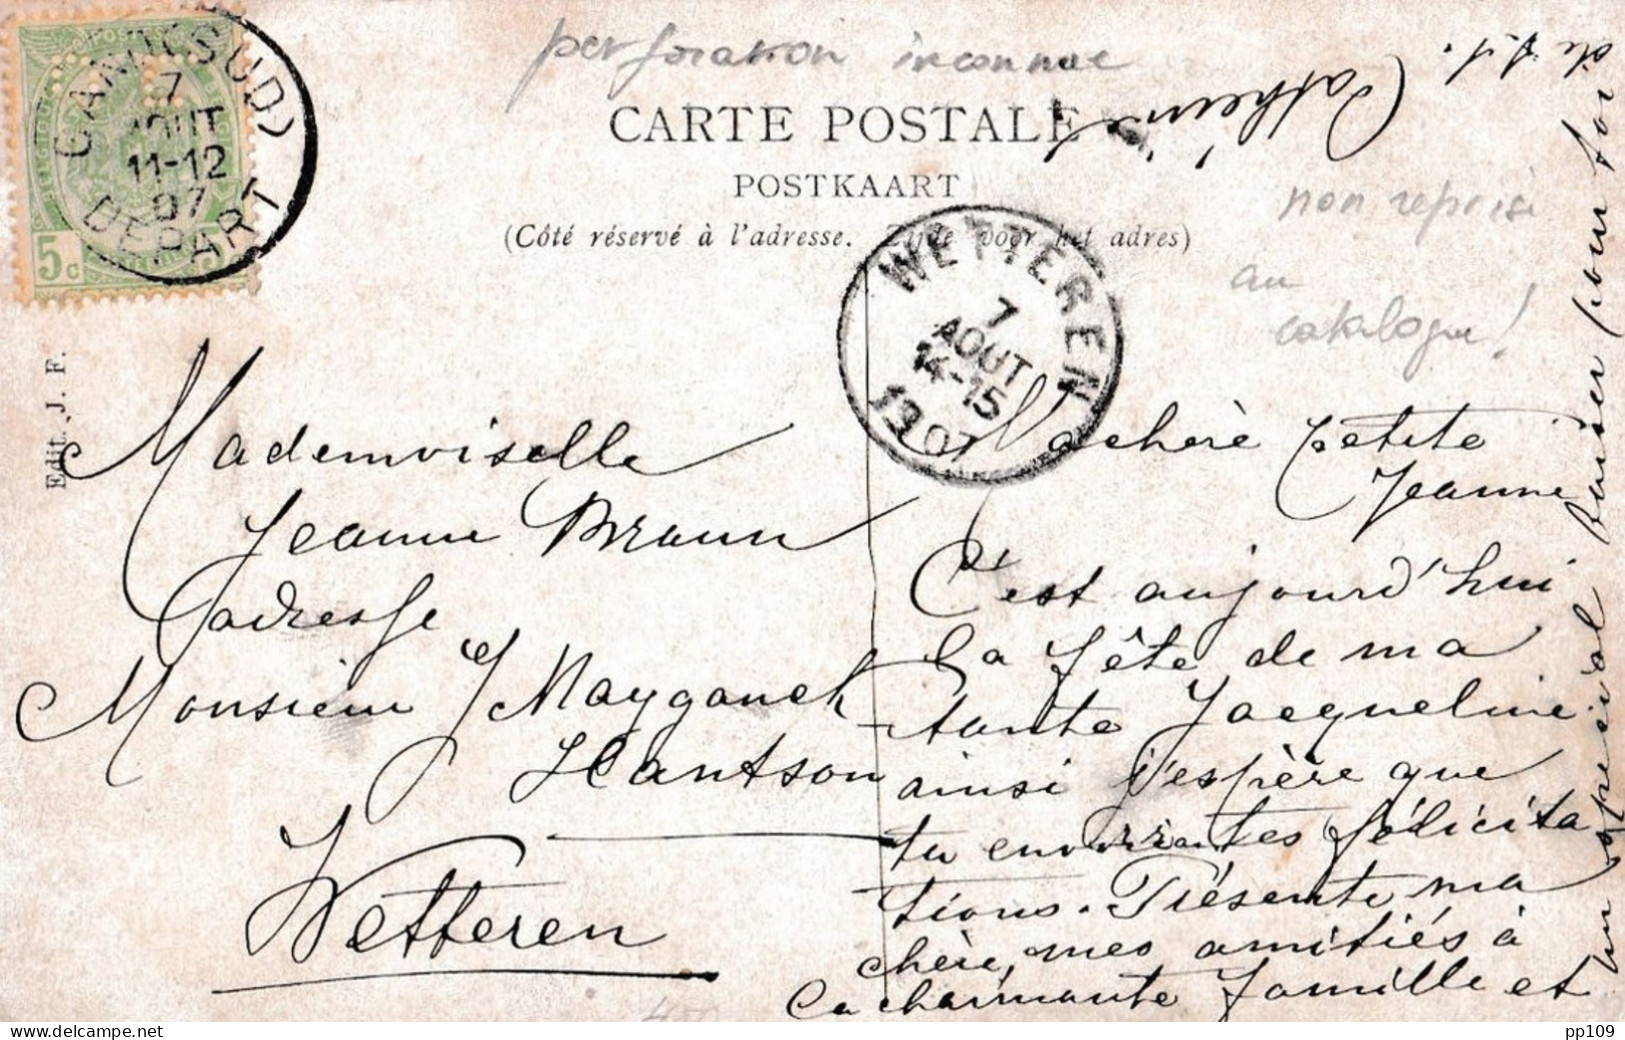 perforation inconnue
CARTE POSTALE
POSTKAART
(Côté réservé à l'adresse. Zijde voor het adres)
GAND (SUD)
7
AOUT
11-12
07
DEPART
5c
WETTEREN
7
AOUT
14-15
1907
non repris
au
catalogue!
Edit. J. F.
Mademoiselle
Jeanne Braun
adresse
Monsieur
Wetteren
Ma chère petite
Jeanne
C'est aujourd'hui
la fête de ma
tante Jacqueline
ainsi j'espère que
tu enverras tes félicita
tions. Présente ma
chère, mes amitiés à
la charmante famille et
un spécial baiser pour toi
de
Catherine
pp109